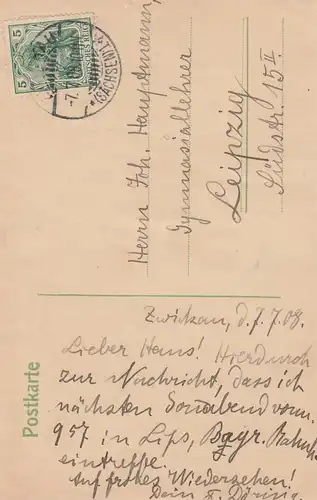 Postkarte
5
DEUTSCHES REICH
(SACHSEN)
Herrn Joh. Hauptmann,
Gymnasiallehrer
Leipzig
Südstr. 15 II
Zwickau, d. 7.7.08.
Lieber Hans! Hierdurch
zur Nachricht, dass ich
nächsten Sonnabend vorm.
957 in Lpz, Bayr. Bahnh.
eintreffe.
Auf frohes Wiedersehen!
Dein F. Döring